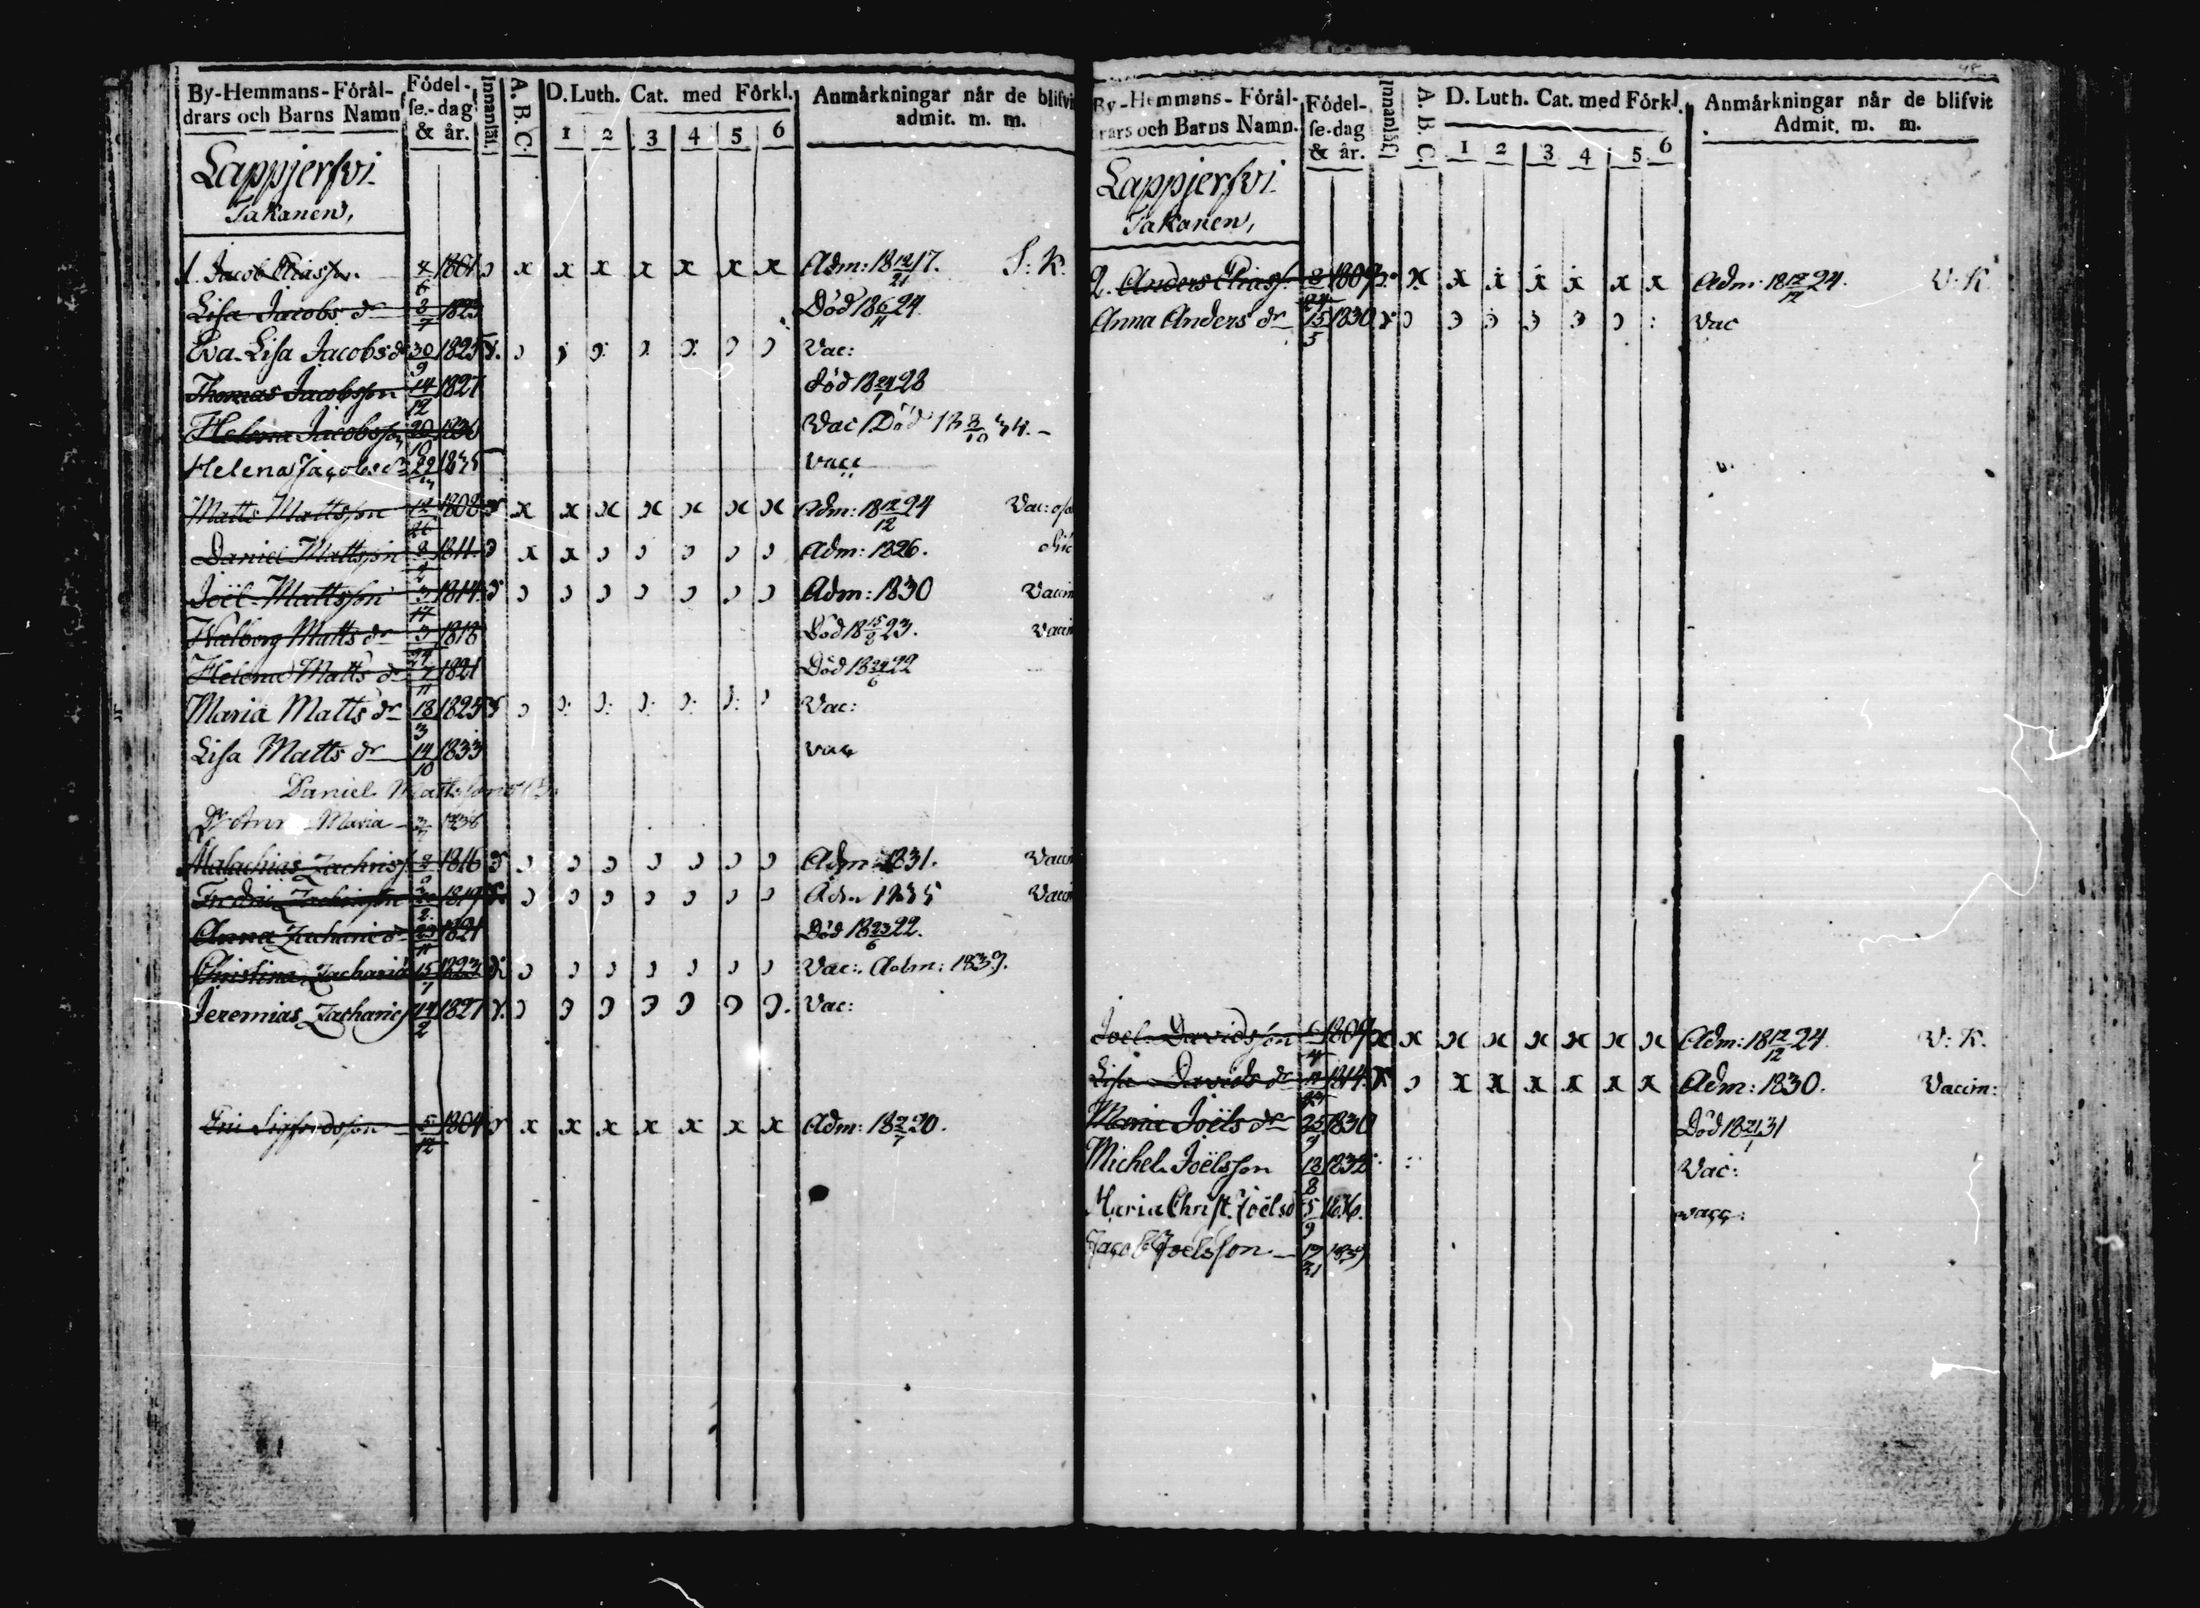 By-Hemmans-Förål-
drars och Barns Namn
Födel-
se-dag
& år.
Innanläs.
A. B. C.
D. Luth. Cat. med Förkl.
1 2 3 4 5 6
Anmärkningar når de blifvit
admit. m. m.
Lappjerfvi
Takanen,
1. Jacob Eliasson 1801 x x x x x x x Adm: 18 12/21 17. S: K.
Lisa Jacobs dr 8/7 1823 Död 18 6/11 24.
Eva Lisa Jacobs dr 30/9 1825 Vac:
Thomas Jacobsson 14/12 1827 Död 18 24/1 28
Jacobsson 20/10 1830 Vac Död 18 8/10 34. -
Helena Jacobs dr 1835 vacc
Matts Mattsson 12/26 1808 x x x x x x x Adm: 18 12/12 24 Vac:
Daniel Mattsson 8/2 1811 x x Adm: 1826.
Joël Mattsson 3/17 1814 Adm: 1830 Vaccin
Walborg Matts dr 3/24 1818 Död 18 15/8 23. Vaccin
Helena Matts dr 7/11 1821 Död 18 24/6 22
Maria Matts dr 18/3 1825 Vac:
Lisa Matts dr 14/10 1833 vac
Daniel Mattssons
Dr Anna Maria 1838
Malachias Zachriss. 1816 Adm 1831. Vaccin
Fredric 1819 Adm 1835 Vaccin
Anna Zacharie dr 23/11 1821 Död 18 23/6 22.
Christina Zacharie 15/7 1823 Vac: Adm: 1839.
Jeremias Zacharies 14/2 1827 Vac:
Eric Sigfredsson 5/12 1804 x x x x x x x Adm: 18 2/7 20.
By-Hemmans-Förål-
drars och Barns Namn.
Födel-
se-dag
& år.
Innanläs.
A. B. C.
D. Luth. Cat. med Förkl.
1 2 3 4 5 6
Anmärkningar når de blifvit
Admit. m. m.
Lappjerfvi
Takanen,
2. Anders Eliass. 8/24 1809 x x x x x x x Adm: 18 12/12 24. V: K.
Anna Anders dr 15/5 1830 Vac
Joel Davidsson 6/4 1809 x x x x x x x x Adm: 18 12/12 24. V: K.
Lisa Davids dr 1814 x x x x x x Adm: 1830. Vaccin:
Maria Joëls dr 25/9 1830 Död 18 21/1 31
Michel Joëlsson 13/8 1832 Vac:
Maria Christ. Joëlsd 5/9 1836. vacc:
Jacob Joelsson 1839